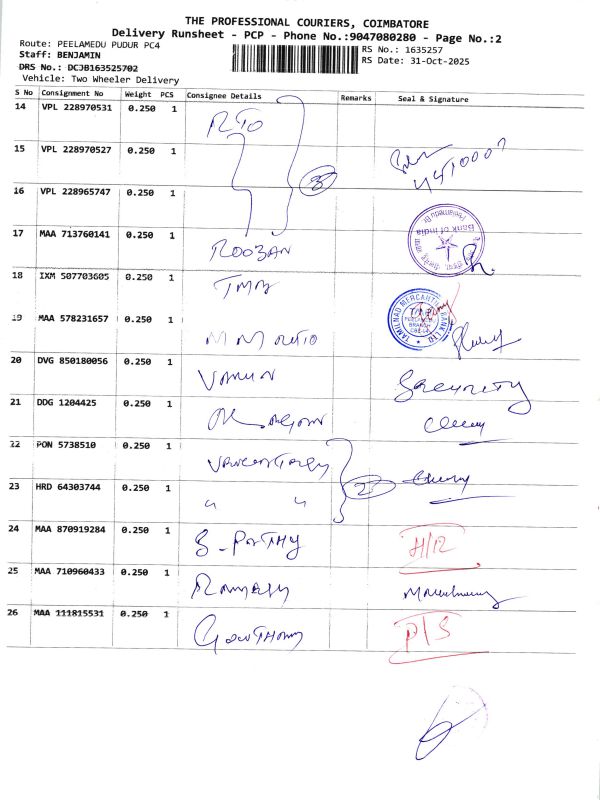 THE PROFESSIONAL COURIERS, COIMBATORE
Delivery Runsheet - PCP - Phone No.:9047080280 - Page No.:2
Route: PEELAMEDU PUDUR PC4
RS No.: 1635257
Staff: BENJAMIN
RS Date: 31-Oct-2025
DRS No.: DCJB163525702
Vehicle: Two Wheeler Delivery
S No Consignment No Weight PCS Consignee Details Remarks Seal & Signature
14 VPL 228970531 0.250 1 RTO
15 VPL 228970527 0.250 1
3
16 VPL 228965747 0.250 1
17 MAA 713760141 0.250 1 ROOBAN
Bank of India
18 IXM 507703605 0.250 1 TMB
TAMILNAD MERCANTILE BANK LTD
19 MAA 578231657 0.250 1 M M
20 DVG 850180056 0.250 1 Security
21 DDG 1204425 0.250 1
22 PON 5738510 0.250 1
2
23 HRD 64303744 0.250 1 " "
24 MAA 870919284 0.250 1 S. H/R
25 MAA 710960433 0.250 1 Ramesh
26 MAA 111815531 0.250 1 Gowtham P/S